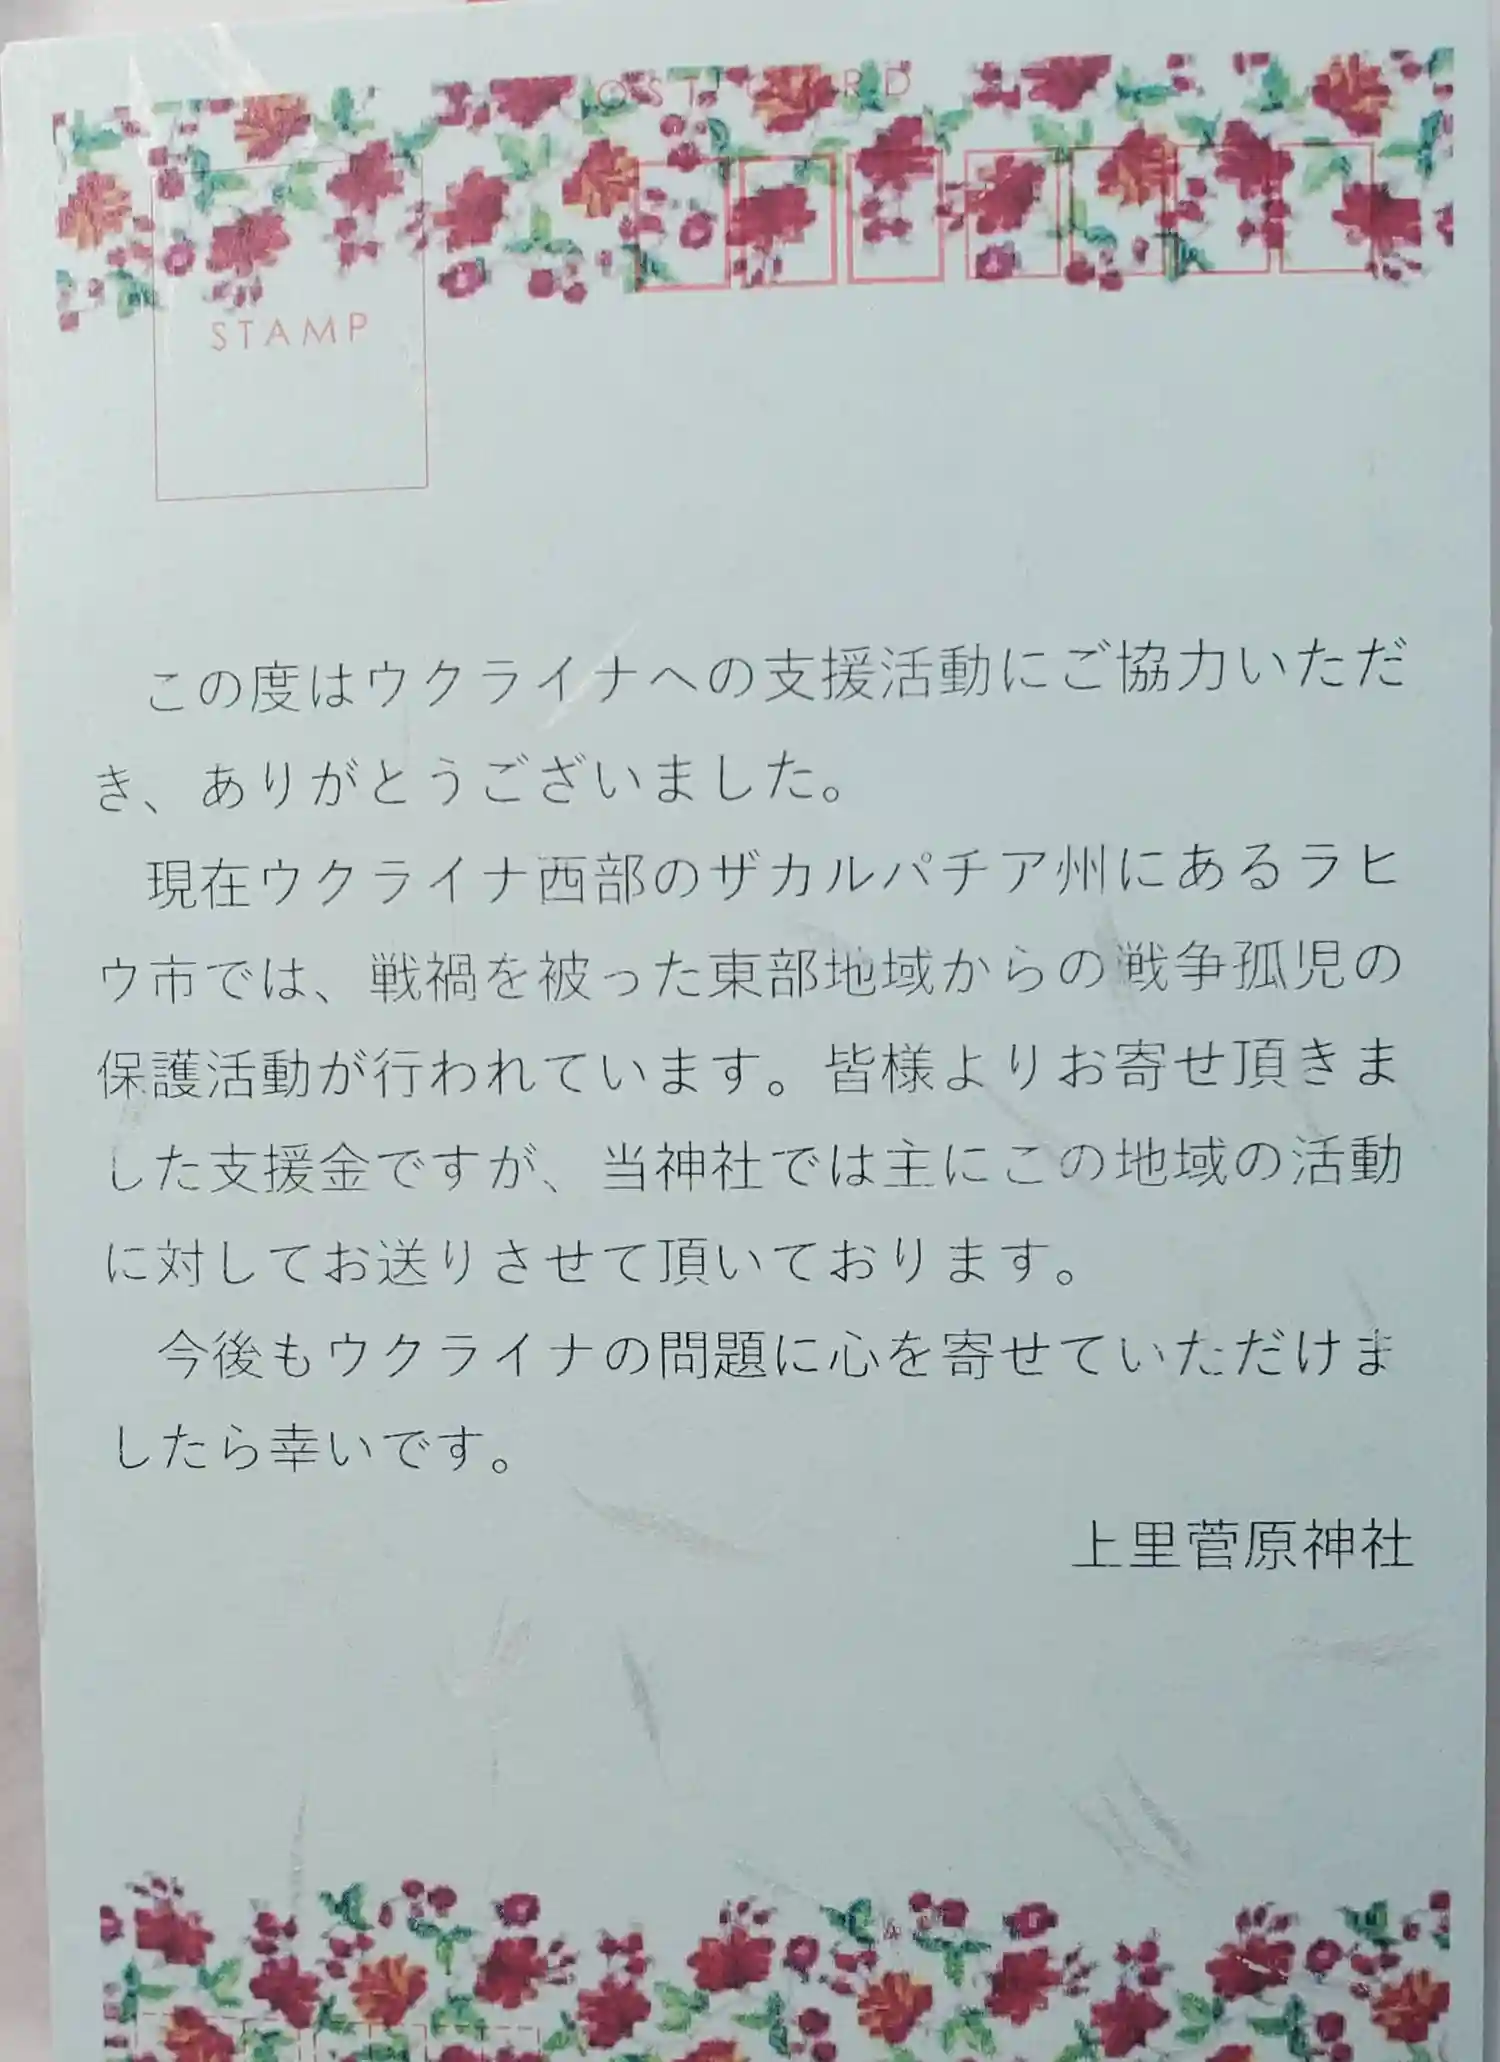 POST CARD
STAMP
この度はウクライナへの支援活動にご協力いただ
き、ありがとうございました。
現在ウクライナ西部のザカルパチア州にあるラヒ
ウ市では、戦禍を被った東部地域からの戦争孤児の
保護活動が行われています。皆様よりお寄せ頂きま
した支援金ですが、当神社では主にこの地域の活動
に対してお送りさせて頂いております。
今後もウクライナの問題に心を寄せていただけま
したら幸いです。
上里菅原神社